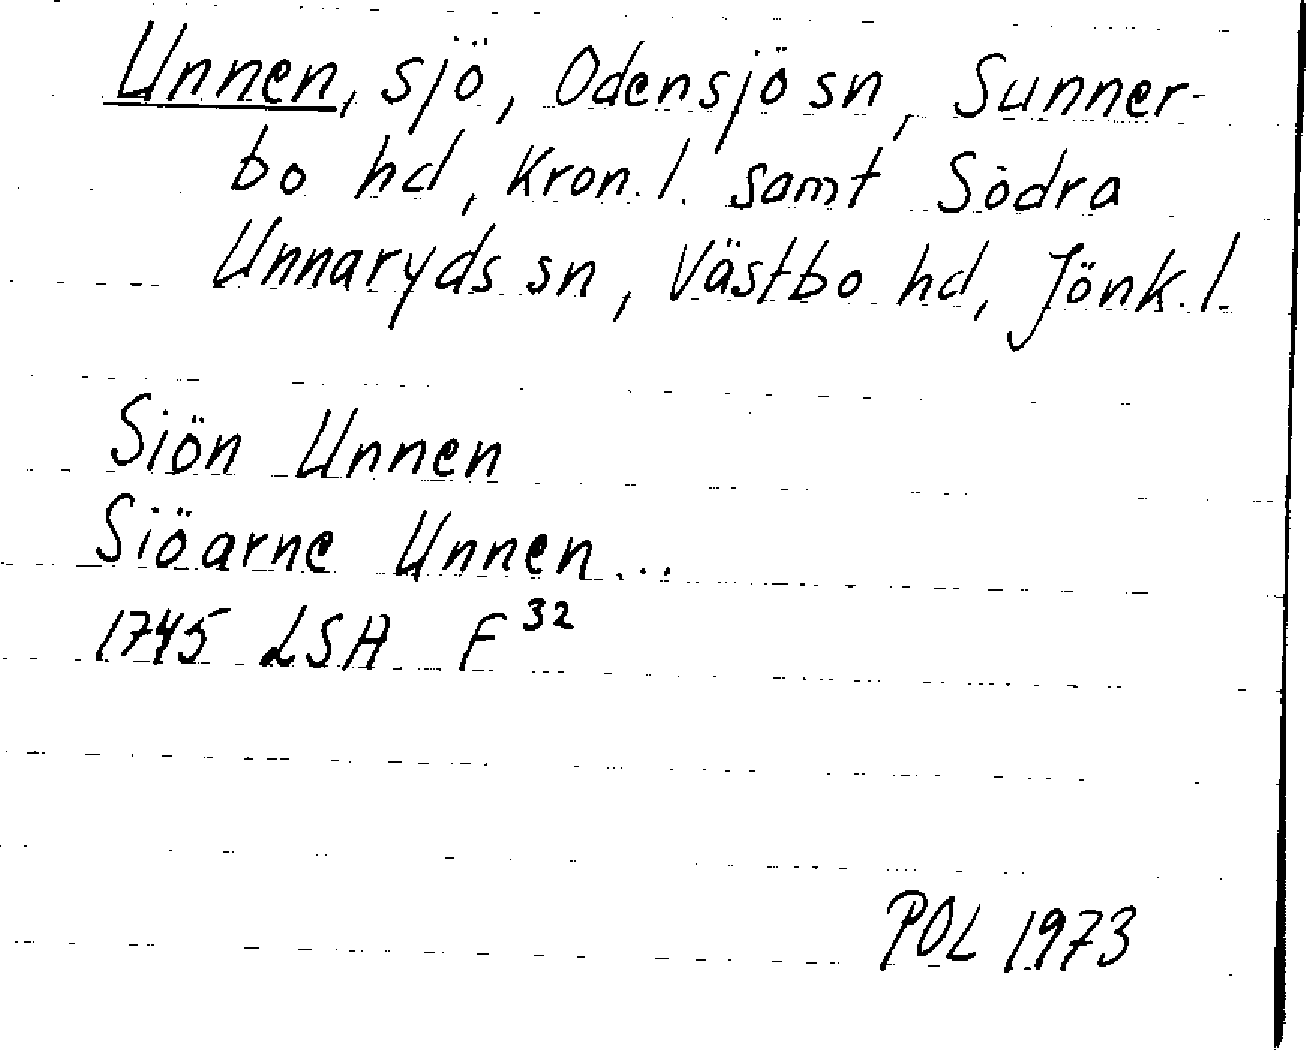 Unnen, sjö, Odensjö sn, Sunner-
bo hd, Kron. l. samt Södra
Unnaryds sn, Västbo hd, Jönk. l.
Siön Unnen
Siöarne Unnen...
1745 LSA F³²
POL 1973